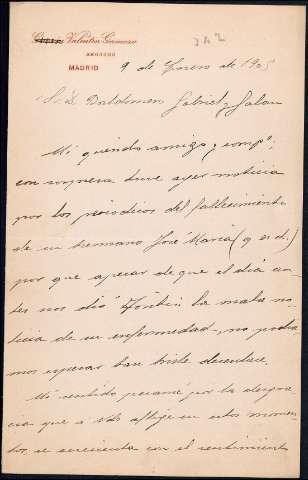 Valentin Gamazo
ABOGADO
MADRID
242
9 de Enero de 1905
Sr. D. Baldomero Gabriel y Galan
Mi querido amigo y compº:
con sorpresa tuve ayer noticia
por los periodicos del fallecimiento
de su hermano José Maria (q. e. d.)
por que apesar de que el dia an-
tes nos dió la mala no-
ticia de su enfermedad, no podia-
mos esperar tan triste desenlace.
Mi sentido pesame por la desgra-
cia que a Vds aflige en estos momen-
tos, se acrecienta con el sentimiento